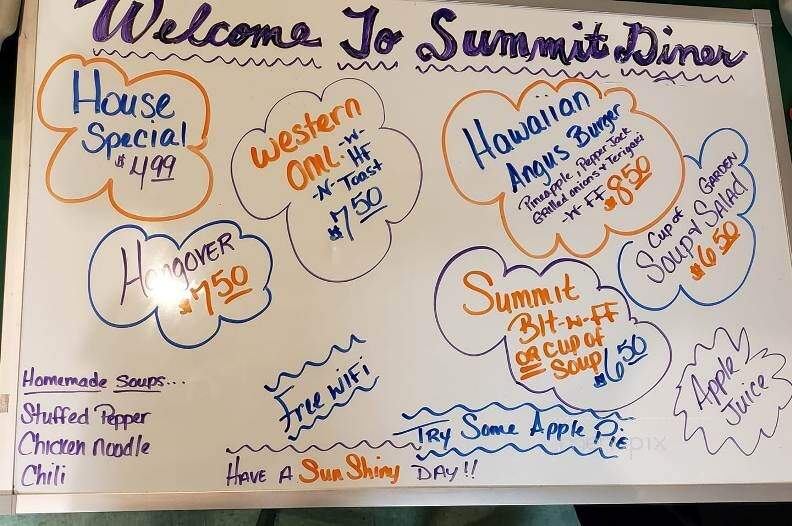 Welcome To Summit Diner
House
Special
$4.99
Western
OML. -w-
HF
-N- Toast
$7.50
Hawaiian
Angus Burger
Pineapple, Pepper Jack
Grilled onions & Terigaki
-w- FF $8.50
Hangover
$7.50
Summit
Blt -w- FF
OR Cup of
Soup $6.50
Cup of GARDEN
Soup & Salad
$6.50
Homemade Soups...
Stuffed Pepper
Chicken Noodle
Chili
Free WiFi
Try Some Apple Pie
Have A Sun Shiny Day!!
Apple
Juice